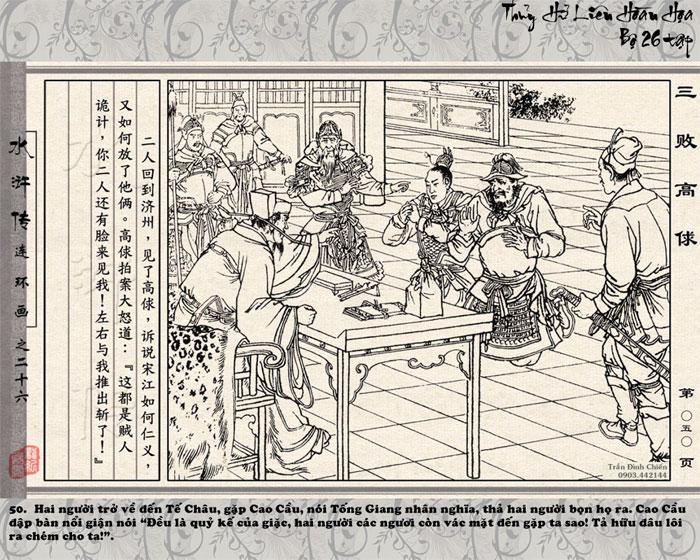 Thủy Hử Liên Hoàn Họa
Bộ 26 tập
三败高俅
二人回到济州，见了高俅，诉说宋江如何仁义，
又如何放了他俩。高俅拍案大怒道：『这都是贼人
诡计，你二人还有脸来见我！左右与我推出斩了！』
水浒传连环画之二十六
第〇五〇页
Trần Đình Chiến
0903.442144
50. Hai người trở về đến Tế Châu, gặp Cao Cầu, nói Tống Giang nhân nghĩa, thả hai người bọn họ ra. Cao Cầu
đập bàn nổi giận nói “Đều là quỷ kế của giặc, hai người các ngươi còn vác mặt đến gặp ta sao! Tả hữu đâu lôi
ra chém cho ta!”.